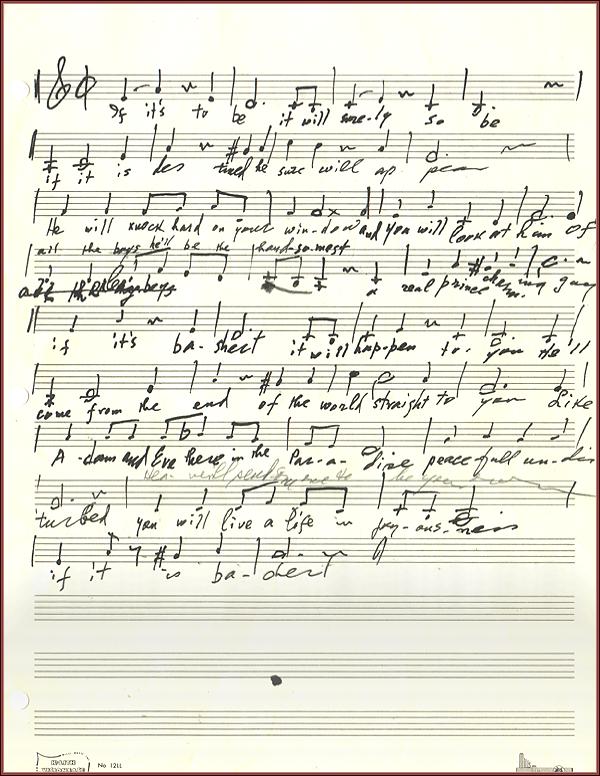 If it's to be it will sure-ly so be
if it is des tined he sure will ap pear
He will knock hard on your win-dow and you will look at him of
all the boys he'll be the hand-so-mest
a real prince charming guy
if it's ba-shert it will hap-pen to you He'll
come from the end of the world straight to you Like
A-dam and Eve there in the Par-a-dise peace-full un-dis
turbed you will live a life in joy-ous-ness
if it is ba-shert
No 1211